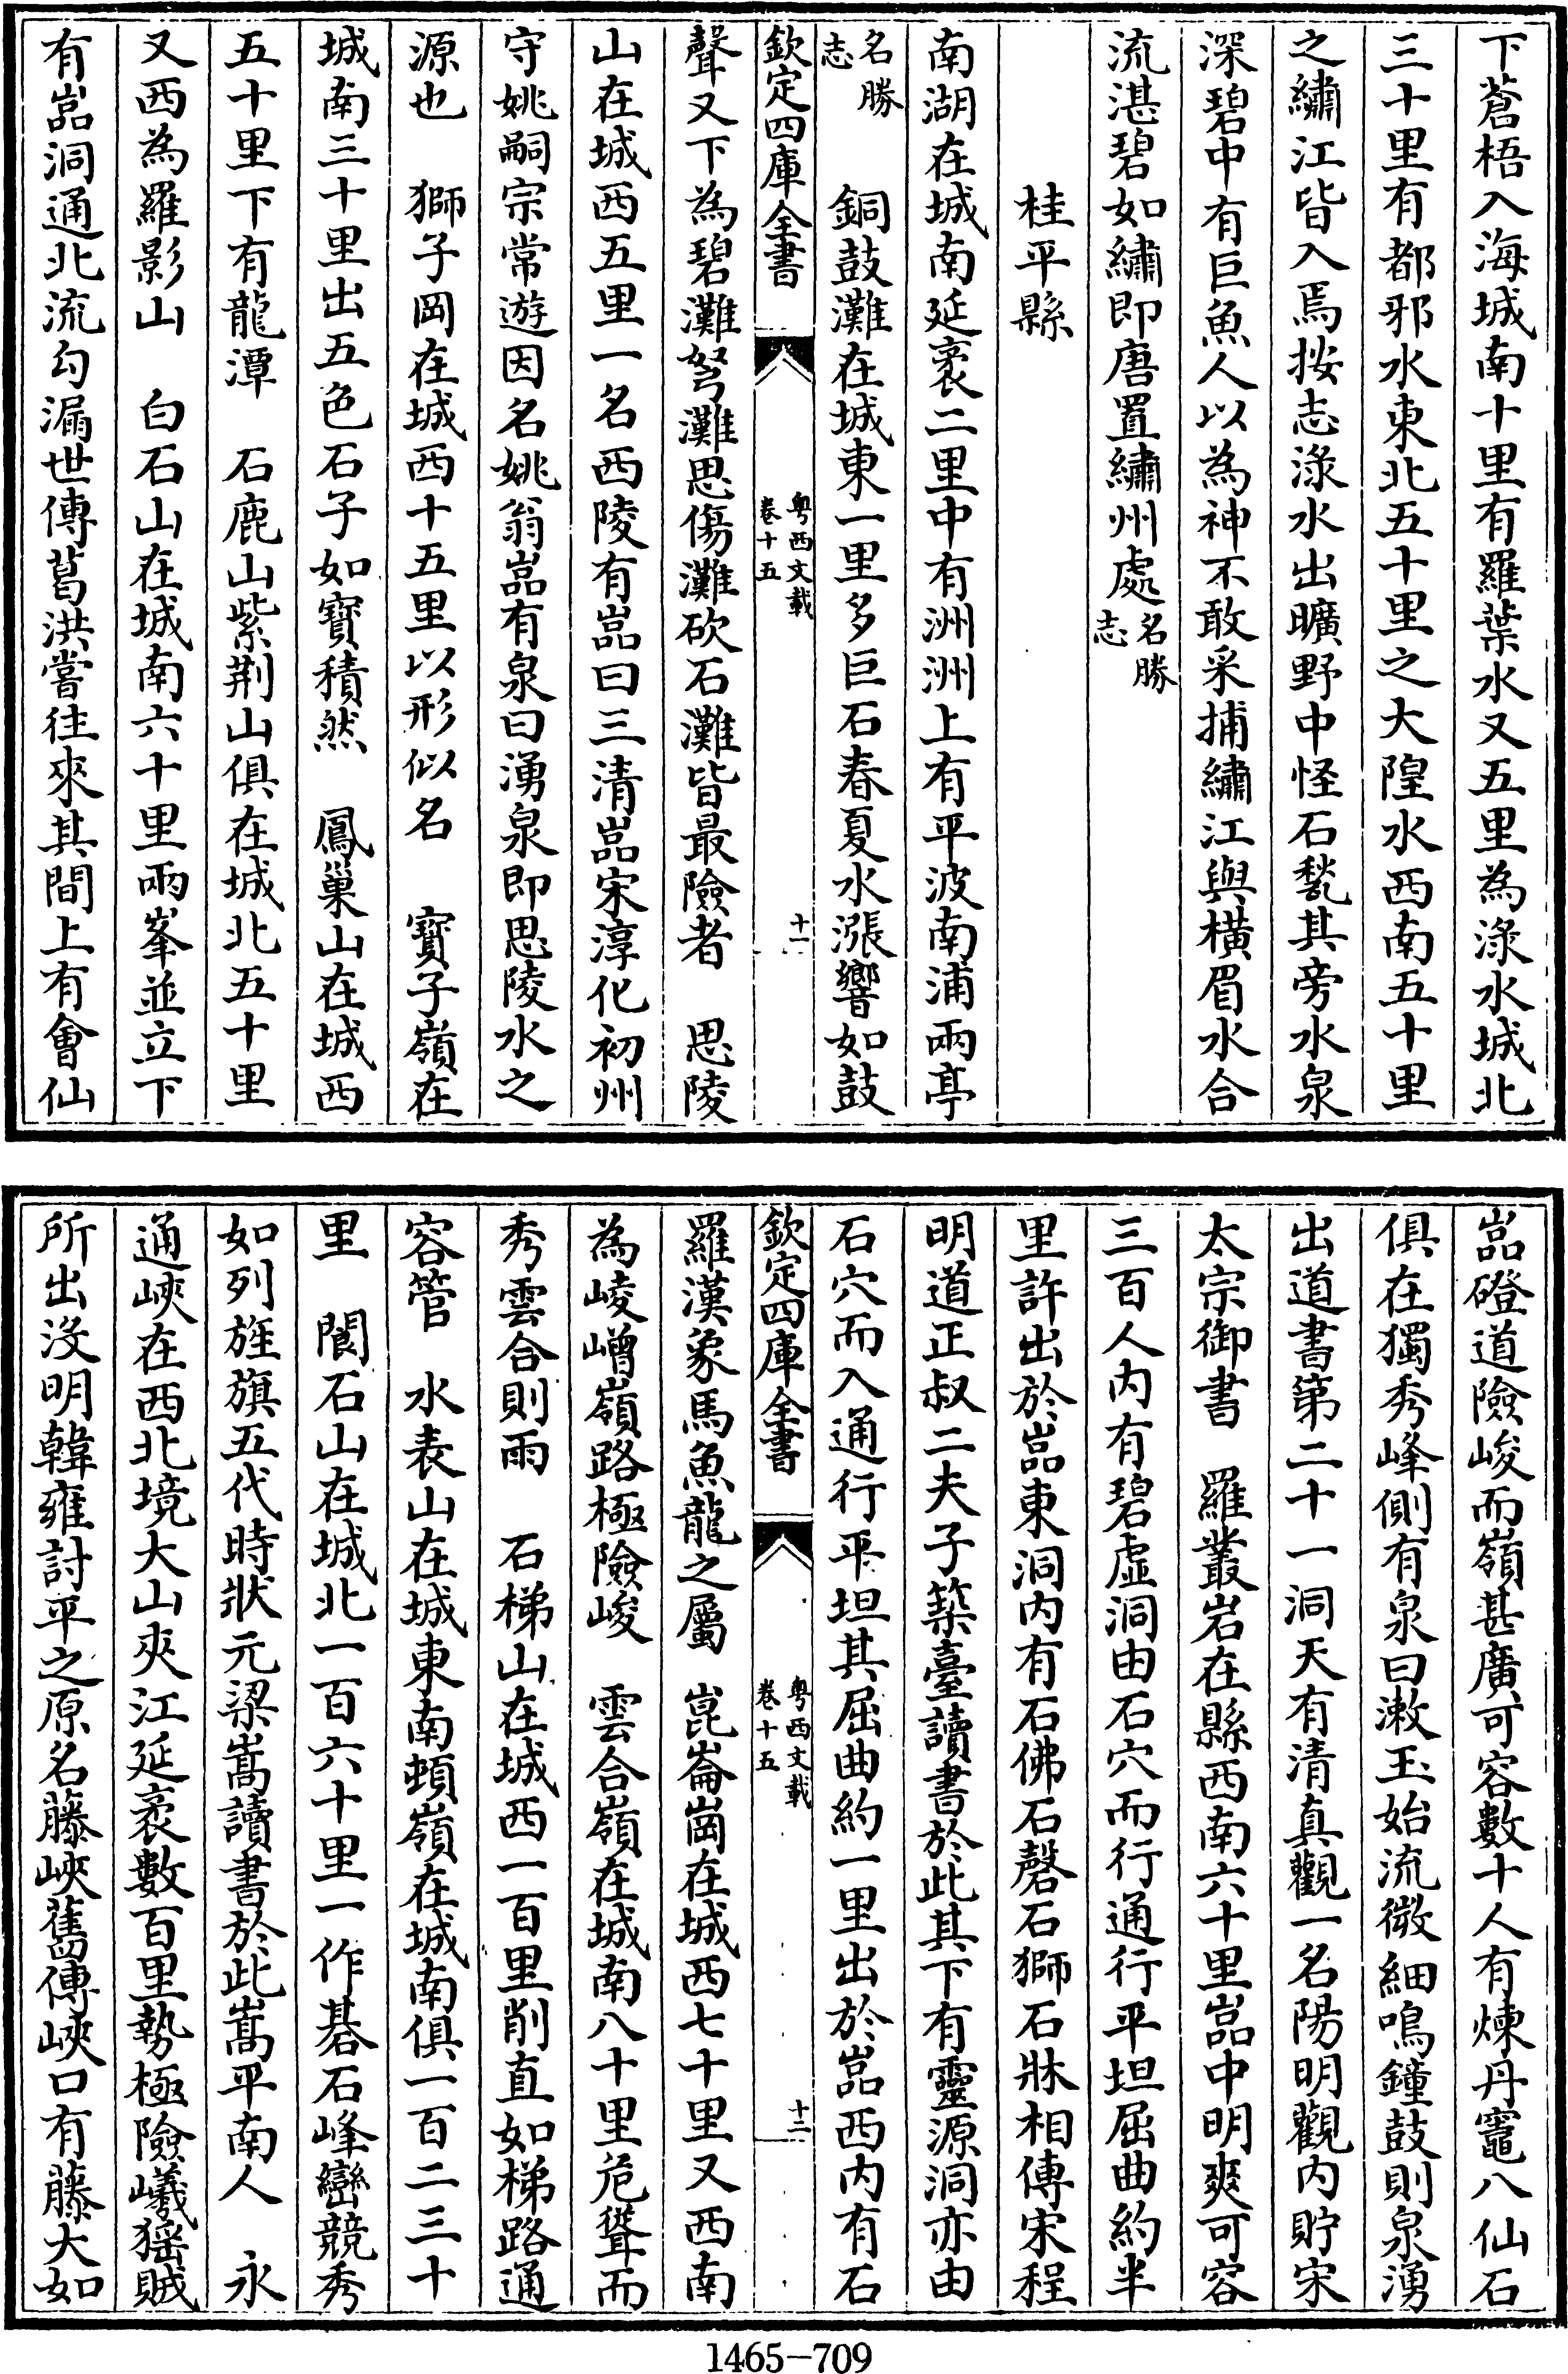 下蒼梧入海城南十里有羅葉水又五里為淥水城北
三十里有都邪水東北五十里之大隍水西南五十里
之繡江皆入焉按志淥水出曠野中怪石甃其旁水泉
深碧中有巨魚人以為神不敢采捕繡江與橫眉水合
流湛碧如繡即唐置繡州處名勝志
桂平縣
南湖在城南延袤二里中有洲洲上有平波南浦兩亭
名勝志 銅鼓灘在城東一里多巨石春夏水漲響如鼓
欽定四庫全書 粵西文載 卷十五 十一
聲又下為碧灘弩灘思傷灘砍石灘皆最險者 思陵
山在城西五里一名西陵有嵒曰三清嵒宋淳化初州
守姚嗣宗常遊因名姚翁嵒有泉曰湧泉即思陵水之
源也 獅子岡在城西十五里以形似名 寶子嶺在
城南三十里出五色石子如寶積然 鳳巢山在城西
五十里下有龍潭 石鹿山紫荆山俱在城北五十里
又西為羅影山 白石山在城南六十里兩峯並立下
有嵒洞通北流勾漏世傳葛洪嘗往來其間上有會仙
嵒磴道險峻而嶺甚廣可容數十人有煉丹竈八仙石
俱在獨秀峰側有泉曰漱玉始流微細鳴鐘鼓則泉湧
出道書第二十一洞天有清真觀一名陽明觀內貯宋
太宗御書 羅叢岩在縣西南六十里嵒中明爽可容
三百人內有碧虛洞由石穴而行通行平坦屈曲約半
里許出於嵒東洞內有石佛石磬石獅石牀相傳宋程
明道正叔二夫子築臺讀書於此其下有靈源洞亦由
石穴而入通行平坦其屈曲約一里出於嵒西內有石
欽定四庫全書 粵西文載 卷十五 十二
羅漢象馬魚龍之屬 崑崙崗在城西七十里又西南
為崚嶒嶺路極險峻 雲合嶺在城南八十里危聳而
秀雲合則雨 石梯山在城西一百里削直如梯路通
容管 水表山在城東南頓嶺在城南俱一百二三十
里 閬石山在城北一百六十里一作碁石峰巒競秀
如列旌旗五代時狀元梁嵩讀書於此嵩平南人 永
通峽在西北境大山夾江延袤數百里勢極險巇猺賊
所出沒明韓雍討平之原名藤峽舊傳峽口有藤大如
1465-709